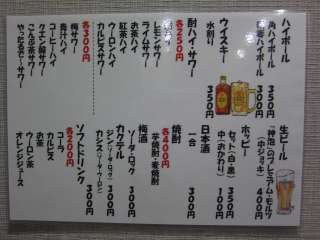 生ビール
「神泡」のプレミアム・モルツ
(中ジョッキ) 400円
ホッピー
セット(白・黒) 350円
中(おかわり) 100円
日本酒
一合 300円
焼酎
各400円
芋焼酎・麦焼酎
梅酒
ソーダ・ロック 300円
カクテル
カシス(ソーダ・ウーロン) 300円
ソフトドリンク
各200円
コーラ
カルピス
お茶
ウーロン茶
オレンジジュース
ハイボール
角ハイボール 350円
ハイボール 300円
ウイスキー
水割り 350円
酎ハイ・サワー
各250円
レモンサワー
ライムサワー
お茶ハイ
紅茶ハイ
ウーロンハイ
カルピスサワー
各300円
梅サワー
青汁ハイ
コーヒーハイ
クエン酸サワー
こんぶ茶サワー